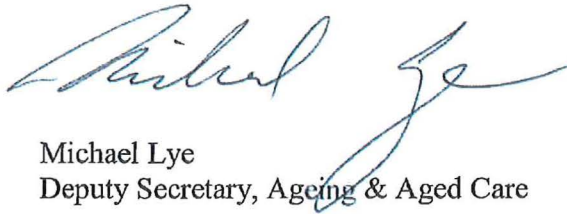 Michael Lye
Michael Lye
Deputy Secretary, Ageing & Aged Care